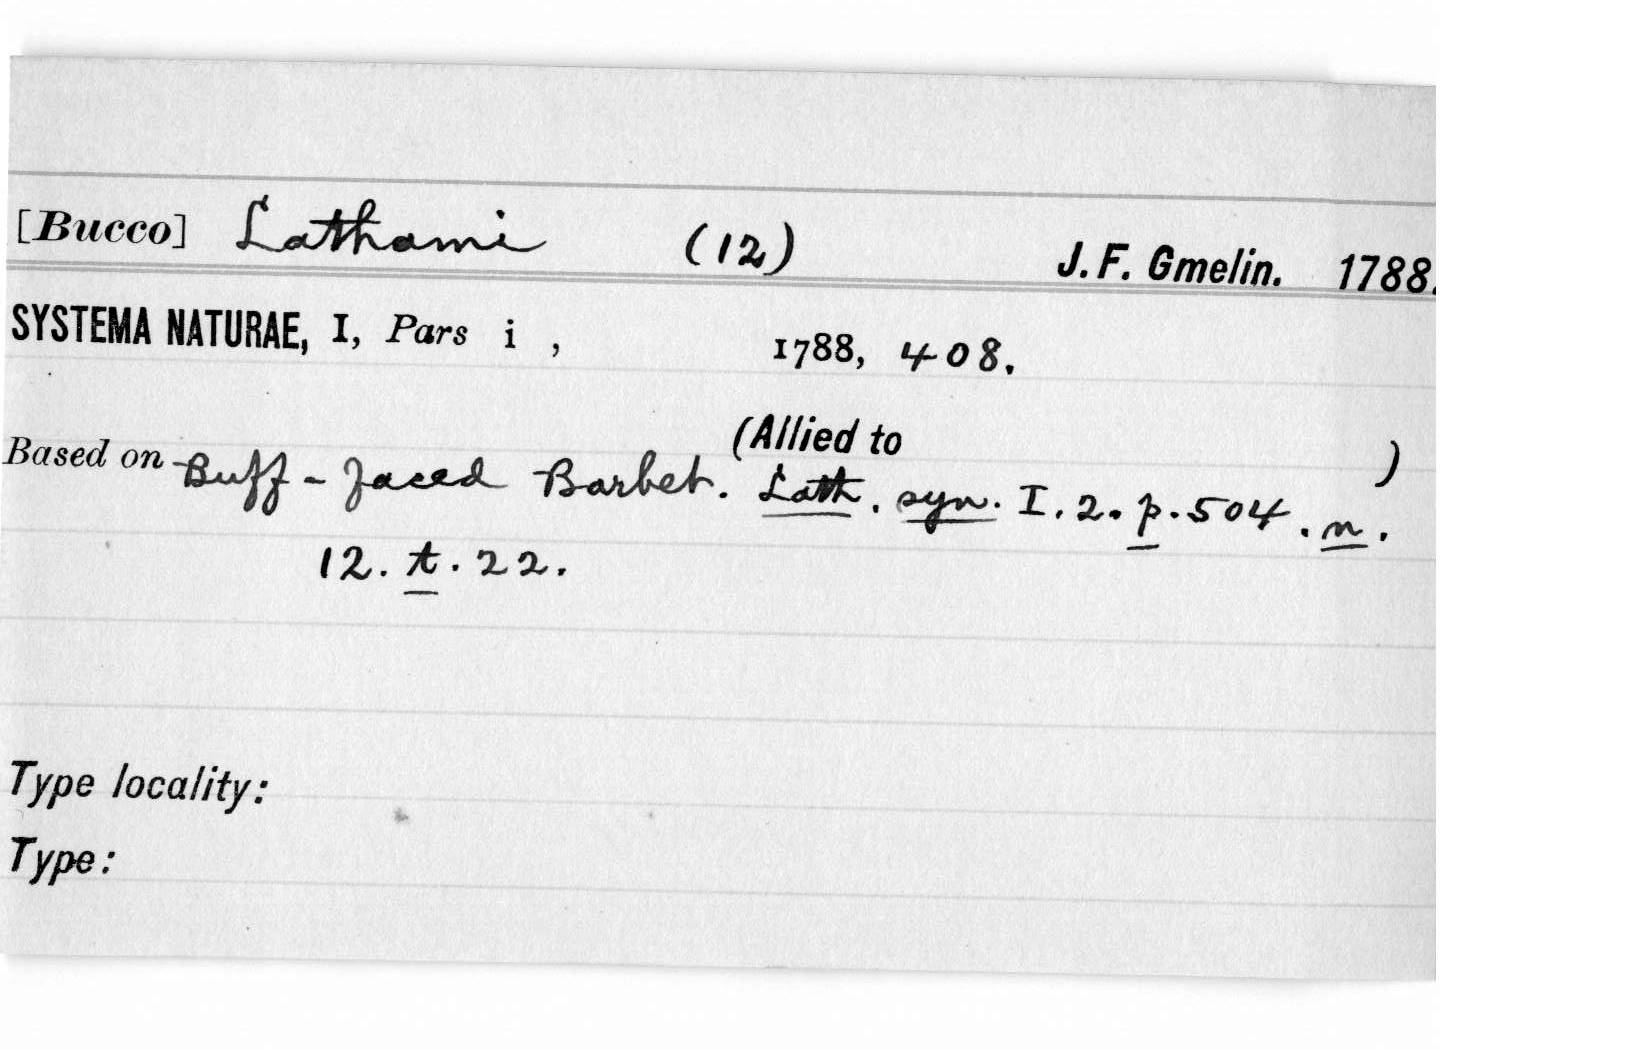 [Bucco] Lathami (12) J. F. Gmelin. 1788.
SYSTEMA NATURAE, I, Pars i , 1788, 408.
(Allied to )
Based on Buff-faced Barbet. Lath. syn. I. 2. p. 504. n.
12. t. 22.
Type locality:
Type: